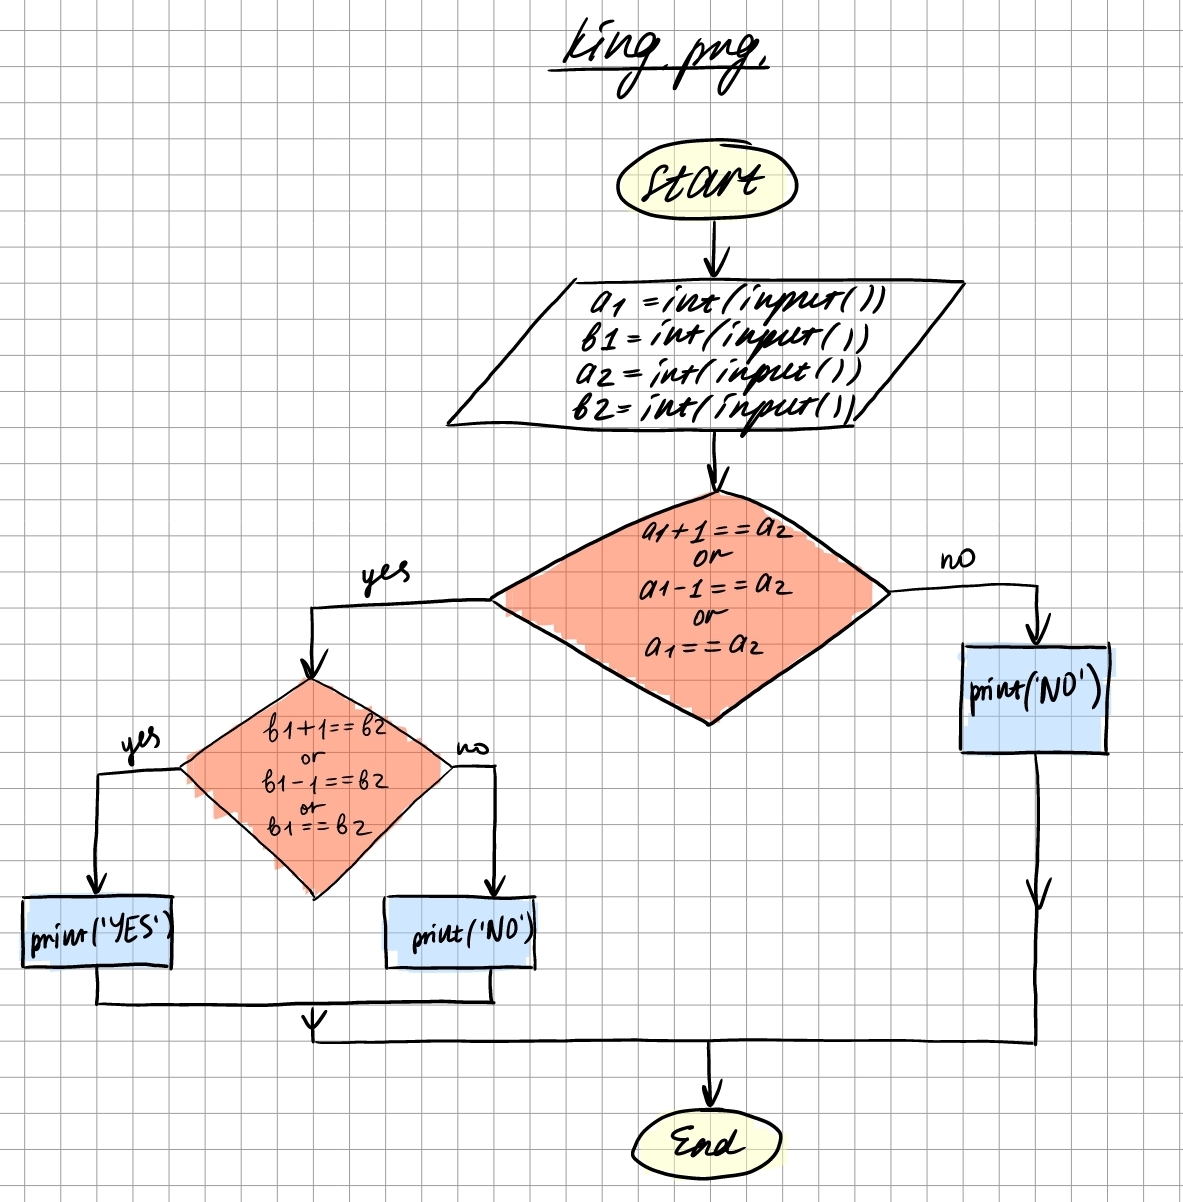 king.png.
start
a1 = int(input())
b1 = int(input())
a2 = int(input())
b2 = int(input())
a1+1 == a2
or
a1-1 == a2
or
a1 == a2
yes
no
print('NO')
b1+1 == b2
or
b1-1 == b2
or
b1 == b2
yes
no
print('YES')
print('NO')
End